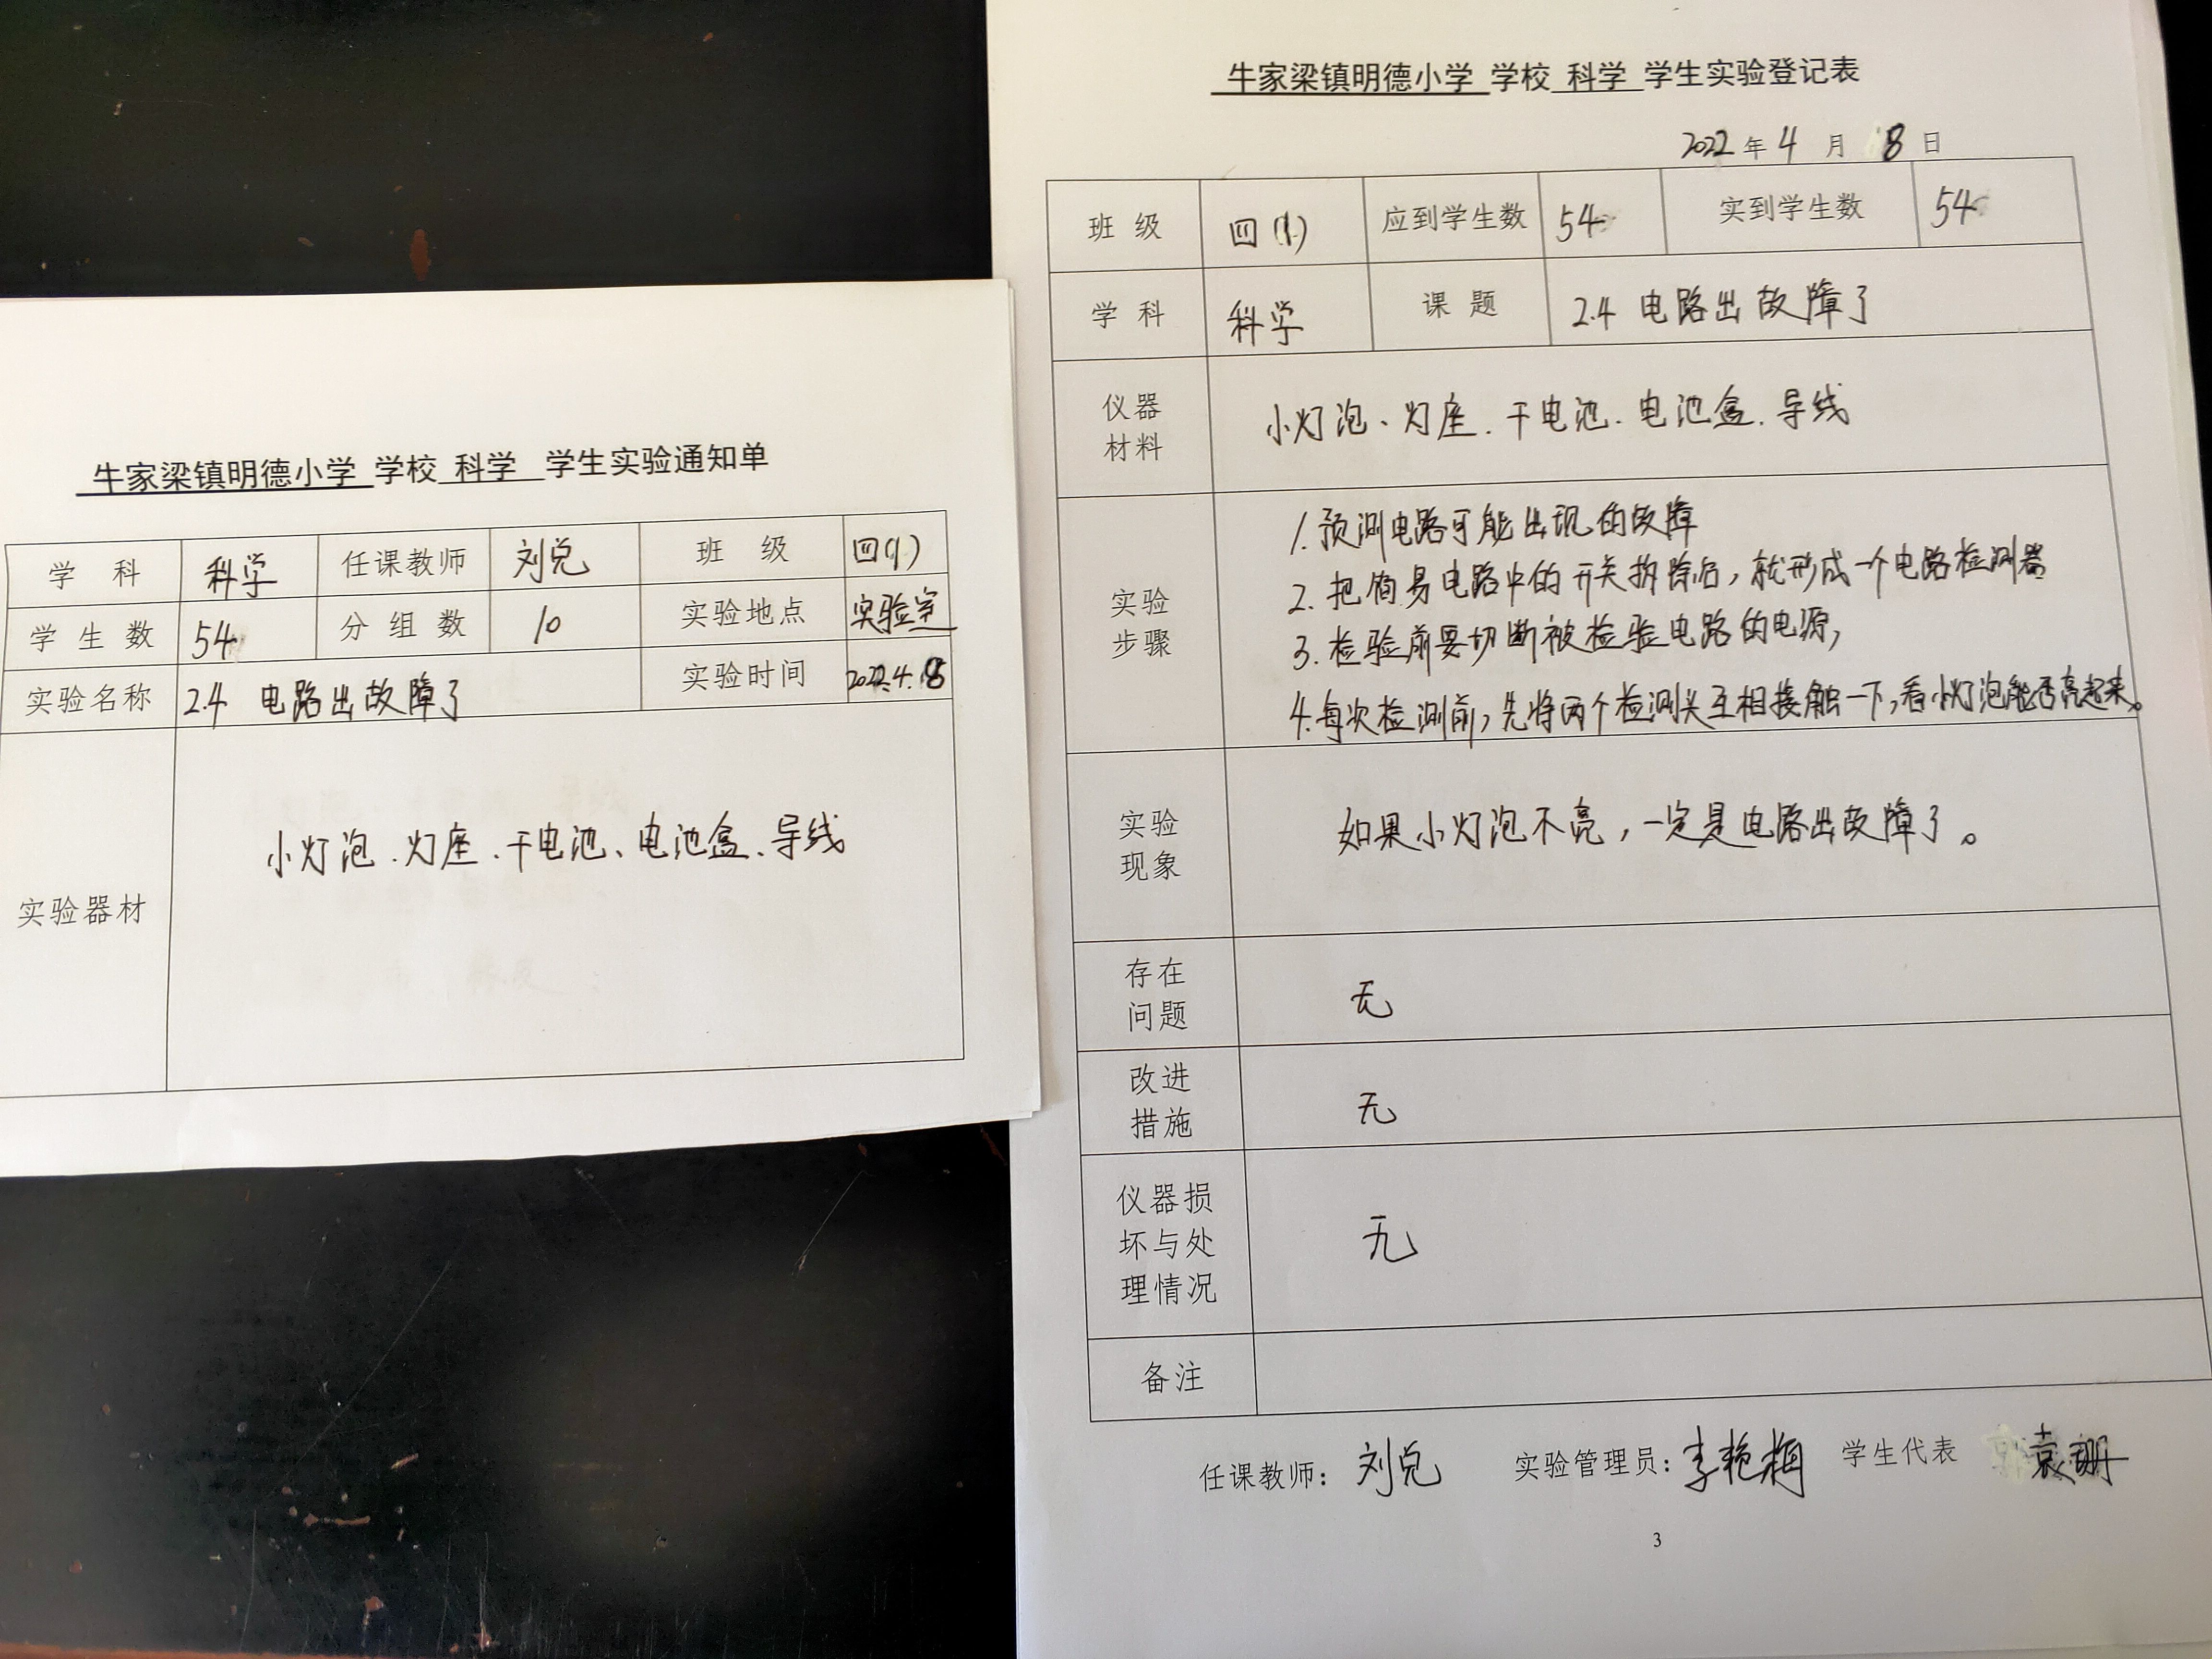 牛家梁镇明德小学 学校 科学 学生实验通知单
学 科 科学 任课教师 刘兑 班 级 四(1)
学 生 数 54 分 组 数 10 实验地点 实验室
实验名称 2.4 电路出故障了 实验时间 2022.4.
实验器材 小灯泡、灯座、干电池、电池盒、导线
牛家梁镇明德小学 学校 科学 学生实验登记表
2022 年 4 月 8 日
班 级 四(1) 应到学生数 54 实到学生数 54
学 科 科学 课 题 2.4 电路出故障了
仪器
材料
小灯泡、灯座、干电池、电池盒、导线
实验
步骤
1.预测电路可能出现的故障
2.把简易电路中的开关拆除后,就形成一个电路检测器
3.检验前要切断被检验电路的电源,
4.每次检测前,先将两个检测头互相接触一下,看小灯泡能否亮起来。
实验
现象
如果小灯泡不亮,一定是电路出故障了。
存在
问题
无
改进
措施
无
仪器损
坏与处
理情况
无
备注
任课教师: 刘兑 实验管理员: 李艳梅 学生代表 袁珊
3